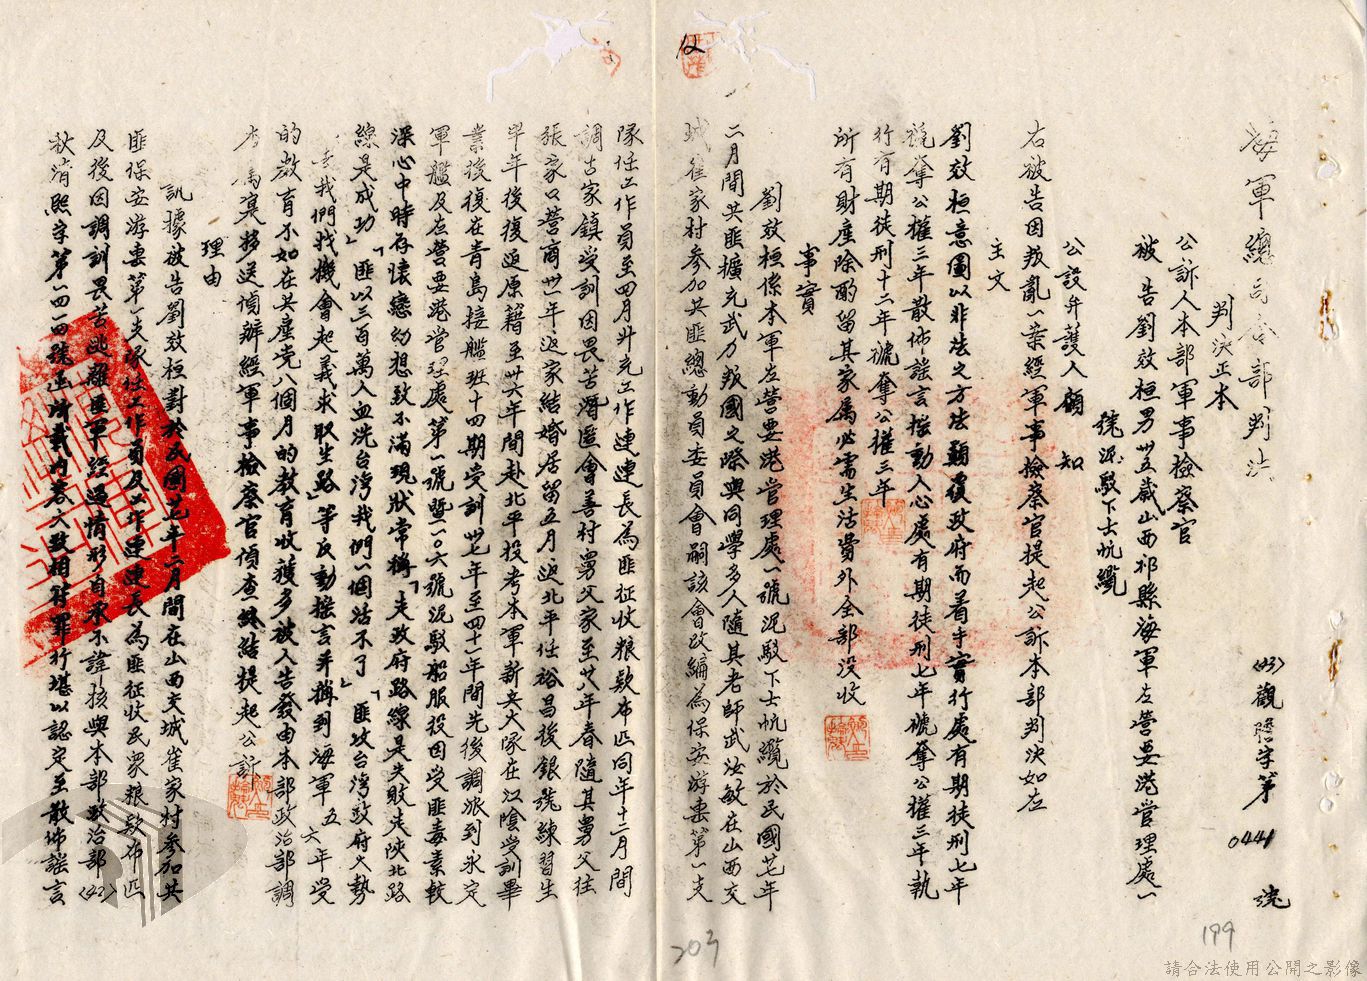 海軍總司令部判決
(43)觀瞻字第0441號
判決正本
公訴人本部軍事檢察官
被告劉效桓男卅五歲山西祁縣海軍左營要港管理處一
號泥駁下士帆纜
公設弁護人顧知
右被告因叛亂一案經軍事檢察官提起公訴本部判決如左
主文
劉效桓意圖以非法之方法顛覆政府而着手實行處有期徒刑七年
褫奪公權三年散佈謠言搖動人心處有期徒刑七年褫奪公權三年執
行有期徒刑十二年褫奪公權三年
所有財產除酌留其家屬必需生活費外全部没收
事實
劉效桓係本軍左營要港管理處一號泥駁下士帆纜於民國廿七年
二月間共匪擴充武力叛國之際與同學多人隨其老師武汝敏在山西交
城崔家村參加共匪總動員委員會嗣該會改編為保安游擊第一支
隊任工作員至四月升充工作連連長為匪征收粮款布匹同年十二月間
調古家鎮受訓因畏苦潛匿會善村舅父家至廿八年春隨其舅父往
張家口營商卅一年返家結婚居留五月返北平任裕昌後銀號練習生
半年後復返原籍至卅六年間赴北平投考本軍新兵大隊在江陰受訓畢
業後復在青島接艦班十四期受訓卅七年至四十一年間先後調派到永定
軍艦及左營要港管理處第一號暨一〇六號泥駁船服役因受匪毒素較
深心中時存懷戀幻想致不滿現狀常稱「走政府路線是失敗走陝北路
線是成功」「匪以三百萬人血洗台湾我們一個活不了」「匪攻台湾政府大勢
去我們找機會起義求取生路」等反動搖言并稱到海軍五六年受
的教育不如在共產党八個月的教育收獲多被人告發由本部政治部調
查属寔移送偵辦經軍事檢察官偵查終結提起公訴
理由
訊據被告劉效桓對於民國廿七年二月間在山西交城崔家村參加共
匪保安游擊第一支隊任工作員及工作連連長為匪征收民眾粮款布匹
及後因調訓畏苦逃離匪軍經過情形自承不諱核與本部政治部(42)
秋清熙字第一四一四號函所載内容大致相符罪行堪以認定至散佈謠言
199
203
請合法使用公開之影像